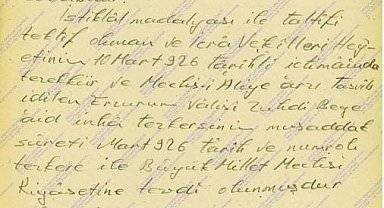 İstiklâl madalyası ile taltifi
teklif olunan ve İcra Vekilleri Hey-
etinin 10 Mart 926 tarihli ictimâında
tezekkür ve Meclis-i Âliye arzı tasvib
idilen Erzurum Valisi Zühdi Beye
aid inha tezkersinin musaddak
sûreti Mart 926 tarih ve numrolı
tezkere ile Büyük Millet Meclisi
Riyâsetine tevdi olunmuşdur